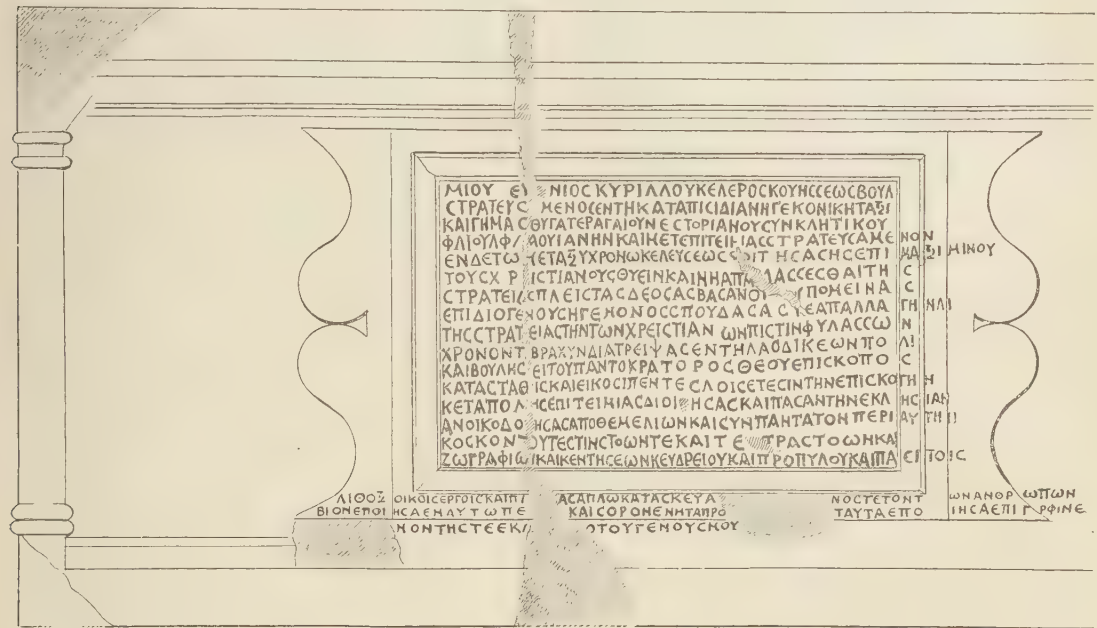 ΜΙΟΥ ΕΥ ΝΙΟϹ ΚΥΡΙΛΛΟΥΚΕΛΕΡΟϹΚΟΥΗϹϹΕΩϹΒΟΥΛ
ϹΤΡΑΤΕΥϹ ΜΕΝΟϹΕΝΤΗΚΑΤΑΠΙϹΙΔΙΑΝΗΓΕΚΟΝΙΚΗΤΑΞΙ
ΚΑΙΓΗΜΑϹ ΘΥΓΑΤΕΡΑΓΑΙΟΥΝΕϹΤΟΡΙΑΝΟΥϹΥΝΚΛΗΤΙΚΟΥ
ΦΛΙΟΥΛΦΛΑΟΥΙΑΝΗΝΚΑΙΜΕΤΕΠΙΤΕΙΜΙΑϹϹΤΡΑΤΕΥϹΑΜΕΝΟΝ
ΕΝΔΕΤΩΜΕΤΑΞΥΧΡΟΝΩΚΕΛΕΥϹΕΩϹ ΟΙΤΗϹΑϹΗϹΕΠΙΜΑΞΙΜΙΝΟΥ
ΤΟΥϹΧΡΙϹΤΙΑΝΟΥϹΘΥΕΙΝΚΑΙΝΗΑΠ ΛΑϹϹΕϹΘΑΙΤΗϹ
ϹΤΡΑΤΕΙΑϹΠΛΕΙϹΤΑϹΔΕΟϹΑϹΒΑϹΑΝΟΥ ΥΠΟΜΕΙΝΑϹ
ΕΠΙΔΙΟΓΕΝΟΥϹΗΓΕΜΟΝΟϹϹΠΟΥΔΑϹΑϹ ΕΑΠΑΛΛΑΓΗΝΑΙ
ΤΗϹϹΤΡΑΤΕΙΑϹΤΗΝΤΩΝΧΡΕΙϹΤΙΑΝΩΝΠΙϹΤΙΝΦΥΛΑϹϹΩΝ
ΧΡΟΝΟΝΤ ΒΡΑΧΥΝΔΙΑΤΡΕΙΨΑϹΕΝΤΗΛΑΟΔΙΚΕΩΝΠΟΛΙ
ΚΑΙΒΟΥΛΗϹΕΙΤΟΥΠΑΝΤΟΚΡΑΤΟΡΟϹΘΕΟΥΕΠΙϹΚΟΠΟϹ
ΚΑΤΑϹΤΑΘΙϹΚΑΙΕΙΚΟϹΙΠΕΝΤΕϹΛΟΙϹΕΤΕϹΙΝΤΗΝΕΠΙϹΚΟΓΗΗ
ΚΕΤΑΠΟΛΗϹΕΠΙΤΕΙΜΙΑϹΔΙΟΙ ΗϹΑϹΚΑΙΠΑϹΑΝΤΗΝΕΚΛΗϹΙΑΝ
ΑΝΟΙΚΟΔΟ ΗϹΑϹΑΠΟΘΕΜΕΛΙΩΝΚΑΙϹΥΝΠΑΝΤΑΤΟΝΠΕΡΙΑΥΤΗΝ
ΚΟϹΚΟΝ ΤΟΥΤΕϹΤΙΝϹΤΟΩΝΤΕΚΑΙΤΕ ΡΑϹΤΟΩΝΚΑΙ
ΖΩΓΡΑΦΙΩΝΚΑΙΚΕΝΤΗϹΕΩΝΚΕΥΔΡΕΙΟΥΚΑΙΠΡΟΠΥΛΟΥΚΑΙΠΑϹΙΤΟΙϹ
ΛΙΘΟΞΟΙΚΟΙϹΕΡΓΟΙϹΚΑΙΠ ΑϹΑΠΛΩΚΑΤΑϹΚΕΥΑ ΝΟϹΤΕΤΟΝΤΩΝΑΝΘΡΩΠΩΝ
ΒΙΟΝΕΠΟΙΗϹΑΕΝΑΥΤΩΠΕ ΚΑΙϹΟΡΟΝΕΝΗΤΑΠΡΟ ΤΑΥΤΑΕΠΟΙΗϹΑΕΠΙΓΡΦΙΝΕ
ΝΟΝΤΗϹΤΕΕΚΛ ΟΤΟΥΓΕΝΟΥϹΚΟΥ